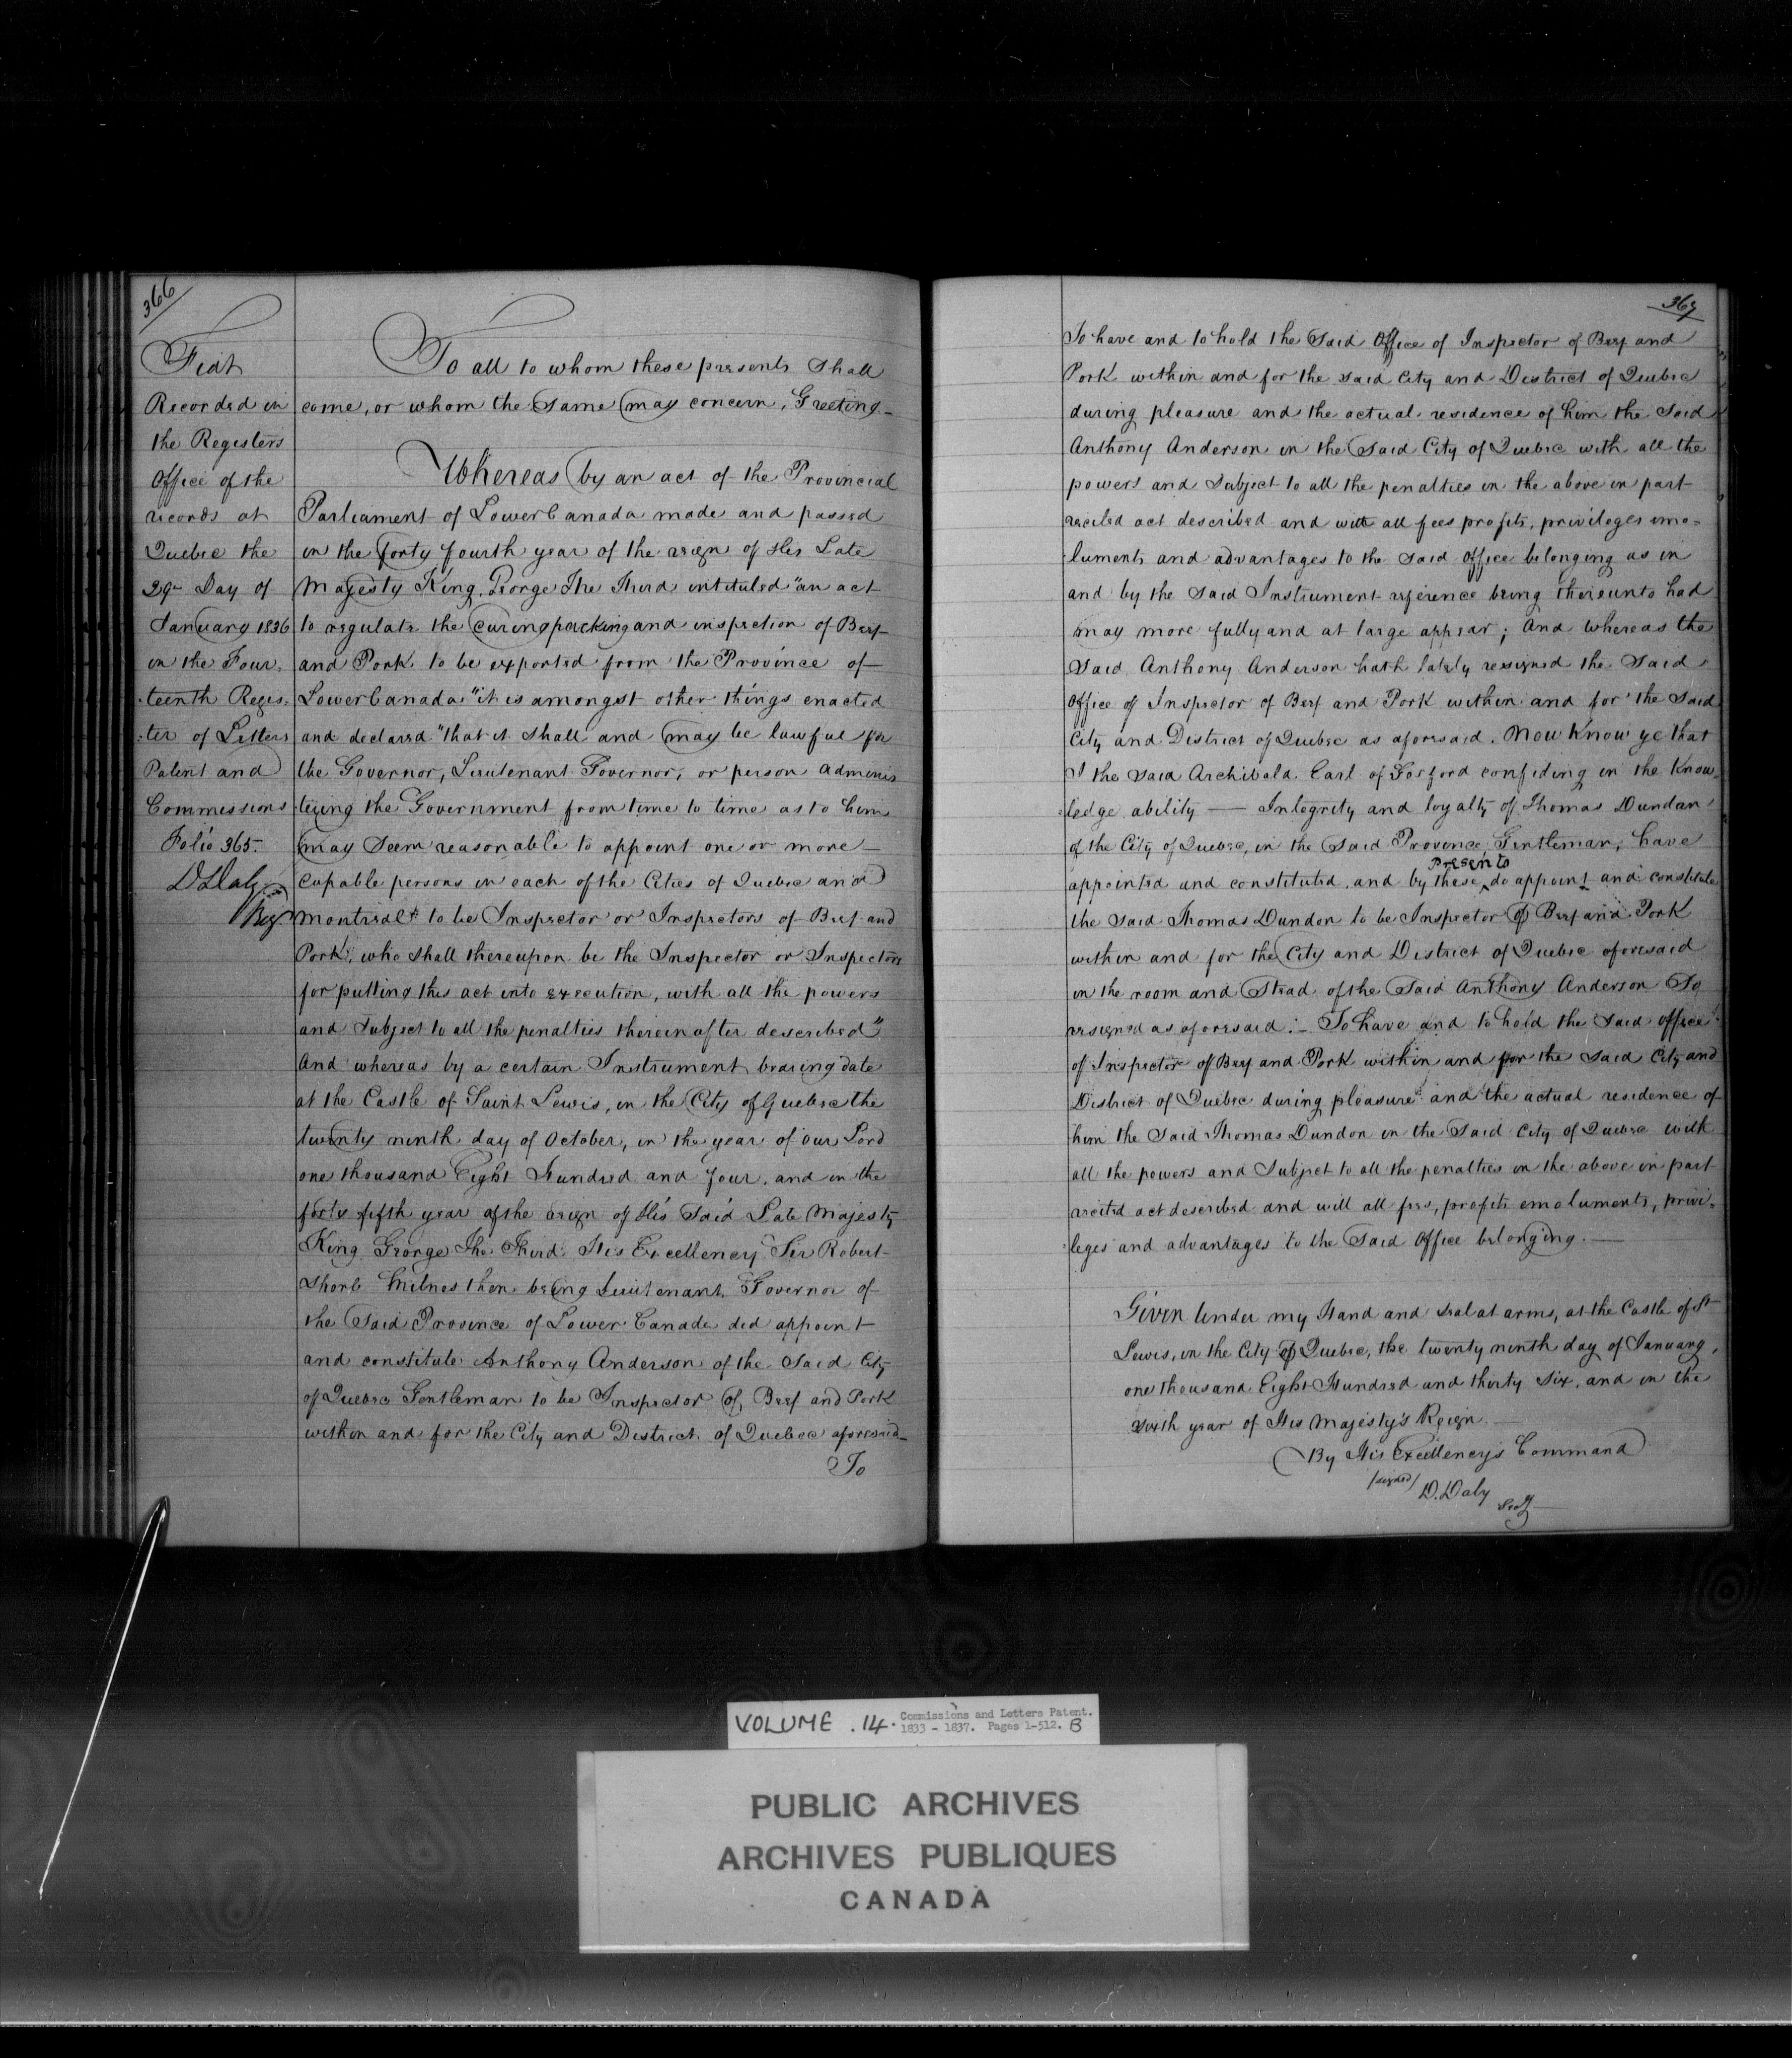 366
Fiat
Recorded in
the Registers
Office of the
records at
Quebec the
29th Day of
January 1836
in the Four,
:teenth Regis=
:ter of Letters
Patent and
Commissions
Folio 365.
D Daly
Reg
To all to whom these presents Shall
come, or whom the Same may concern, Greeting.
Whereas by an act of the Provincial
Parliament of Lower Canada made and passed
in the forty fourth year of the reign of His Late
Majesty King George The Third intituled "an act
to regulate the curing packing and inspection of Beef
and Pork to be exported from the Province of
Lower Canada" it is amongst other things enacted
and declared "that it shall and may be lawful for
the Governor, Lieutenant Governor, or person adminis
tering the Government from time to time as to him
may Seem reasonable to appoint one or more
capable persons in each of the Cities of Quebec and
Montreal to be Inspector or Inspectors of Beef and
Pork, who shall thereupon be the Inspector or Inspectors
for putting this act into execution, with all the powers
and subject to all the penalties therein after described"
And whereas by a certain Instrument bearing date
at the Castle of Saint Lewis, in the City of Quebec the
twenty ninth day of October, in the year of our Lord
one thousand Eight Hundred and four, and in the
forty fifth year of the reign of His Said Late Majesty
King George The Third His Excellency Sir Robert
Shore Milnes then being Lieutenant Governor of
the Said Province of Lower Canada did appoint
and constitute Anthony Anderson of the Said City
of Quebec Gentleman to be Inspector of Beef and Pork
within and for the City and District of Quebec aforesaid
To
367
To have and to hold the Said Office of Inspector of Beef and
Pork within and for the said City and District of Quebec
during pleasure and the actual residence of him the Said
Anthony Anderson in the Said City of Quebec with all the
powers and subject to all the penalties in the above in part
recited act described and with all fees profits, privileges emo=
luments and advantages to the Said Office belonging as in
and by the Said Instrument reference being thereunto had
may more fully and at large appear; And whereas the
Said Anthony Anderson hath lately resigned the Said
Office of Inspector of Beef and Pork within and for the Said
City and District of Quebec as aforesaid. Now Know ye that
I the Said Archibald Earl of Gosford confiding in the Know=
ledge ability — Integrity and loyalty of Thomas Dundan
of the City of Quebec, in the Said Province, Gentleman, have
presents
appointed and constituted, and by these ^ do appoint and constitute
the Said Thomas Dundon to be Inspector of Beef and Pork
within and for the City and District of Quebec aforesaid
in the room and Stead of the Said Anthony Anderson So
resigned as aforesaid :– To have and to hold the Said Office
of Inspector of Beef and Pork within and for the Said City and
District of Quebec during pleasure and the actual residence of
him the Said Thomas Dundon in the Said City of Quebec with
all the powers and Subject to all the penalties in the above in part
recited act described and will all fees, profits emoluments, privi=
:leges and advantages to the Said Office belonging.—
Given Under my Hand and Seal at arms, at the Castle of St
Lewis, in the City of Quebec, the twenty ninth day of January,
one thousand Eight Hundred and thirty Six, and in the
sixth year of His Majesty's Reign.—
By His Excellency's Command
/signed/ D. Daly
Secy
VOLUME .14. Commissions and Letters Patent.
1833 - 1837. Pages 1-512. B
PUBLIC ARCHIVES
ARCHIVES PUBLIQUES
CANADA